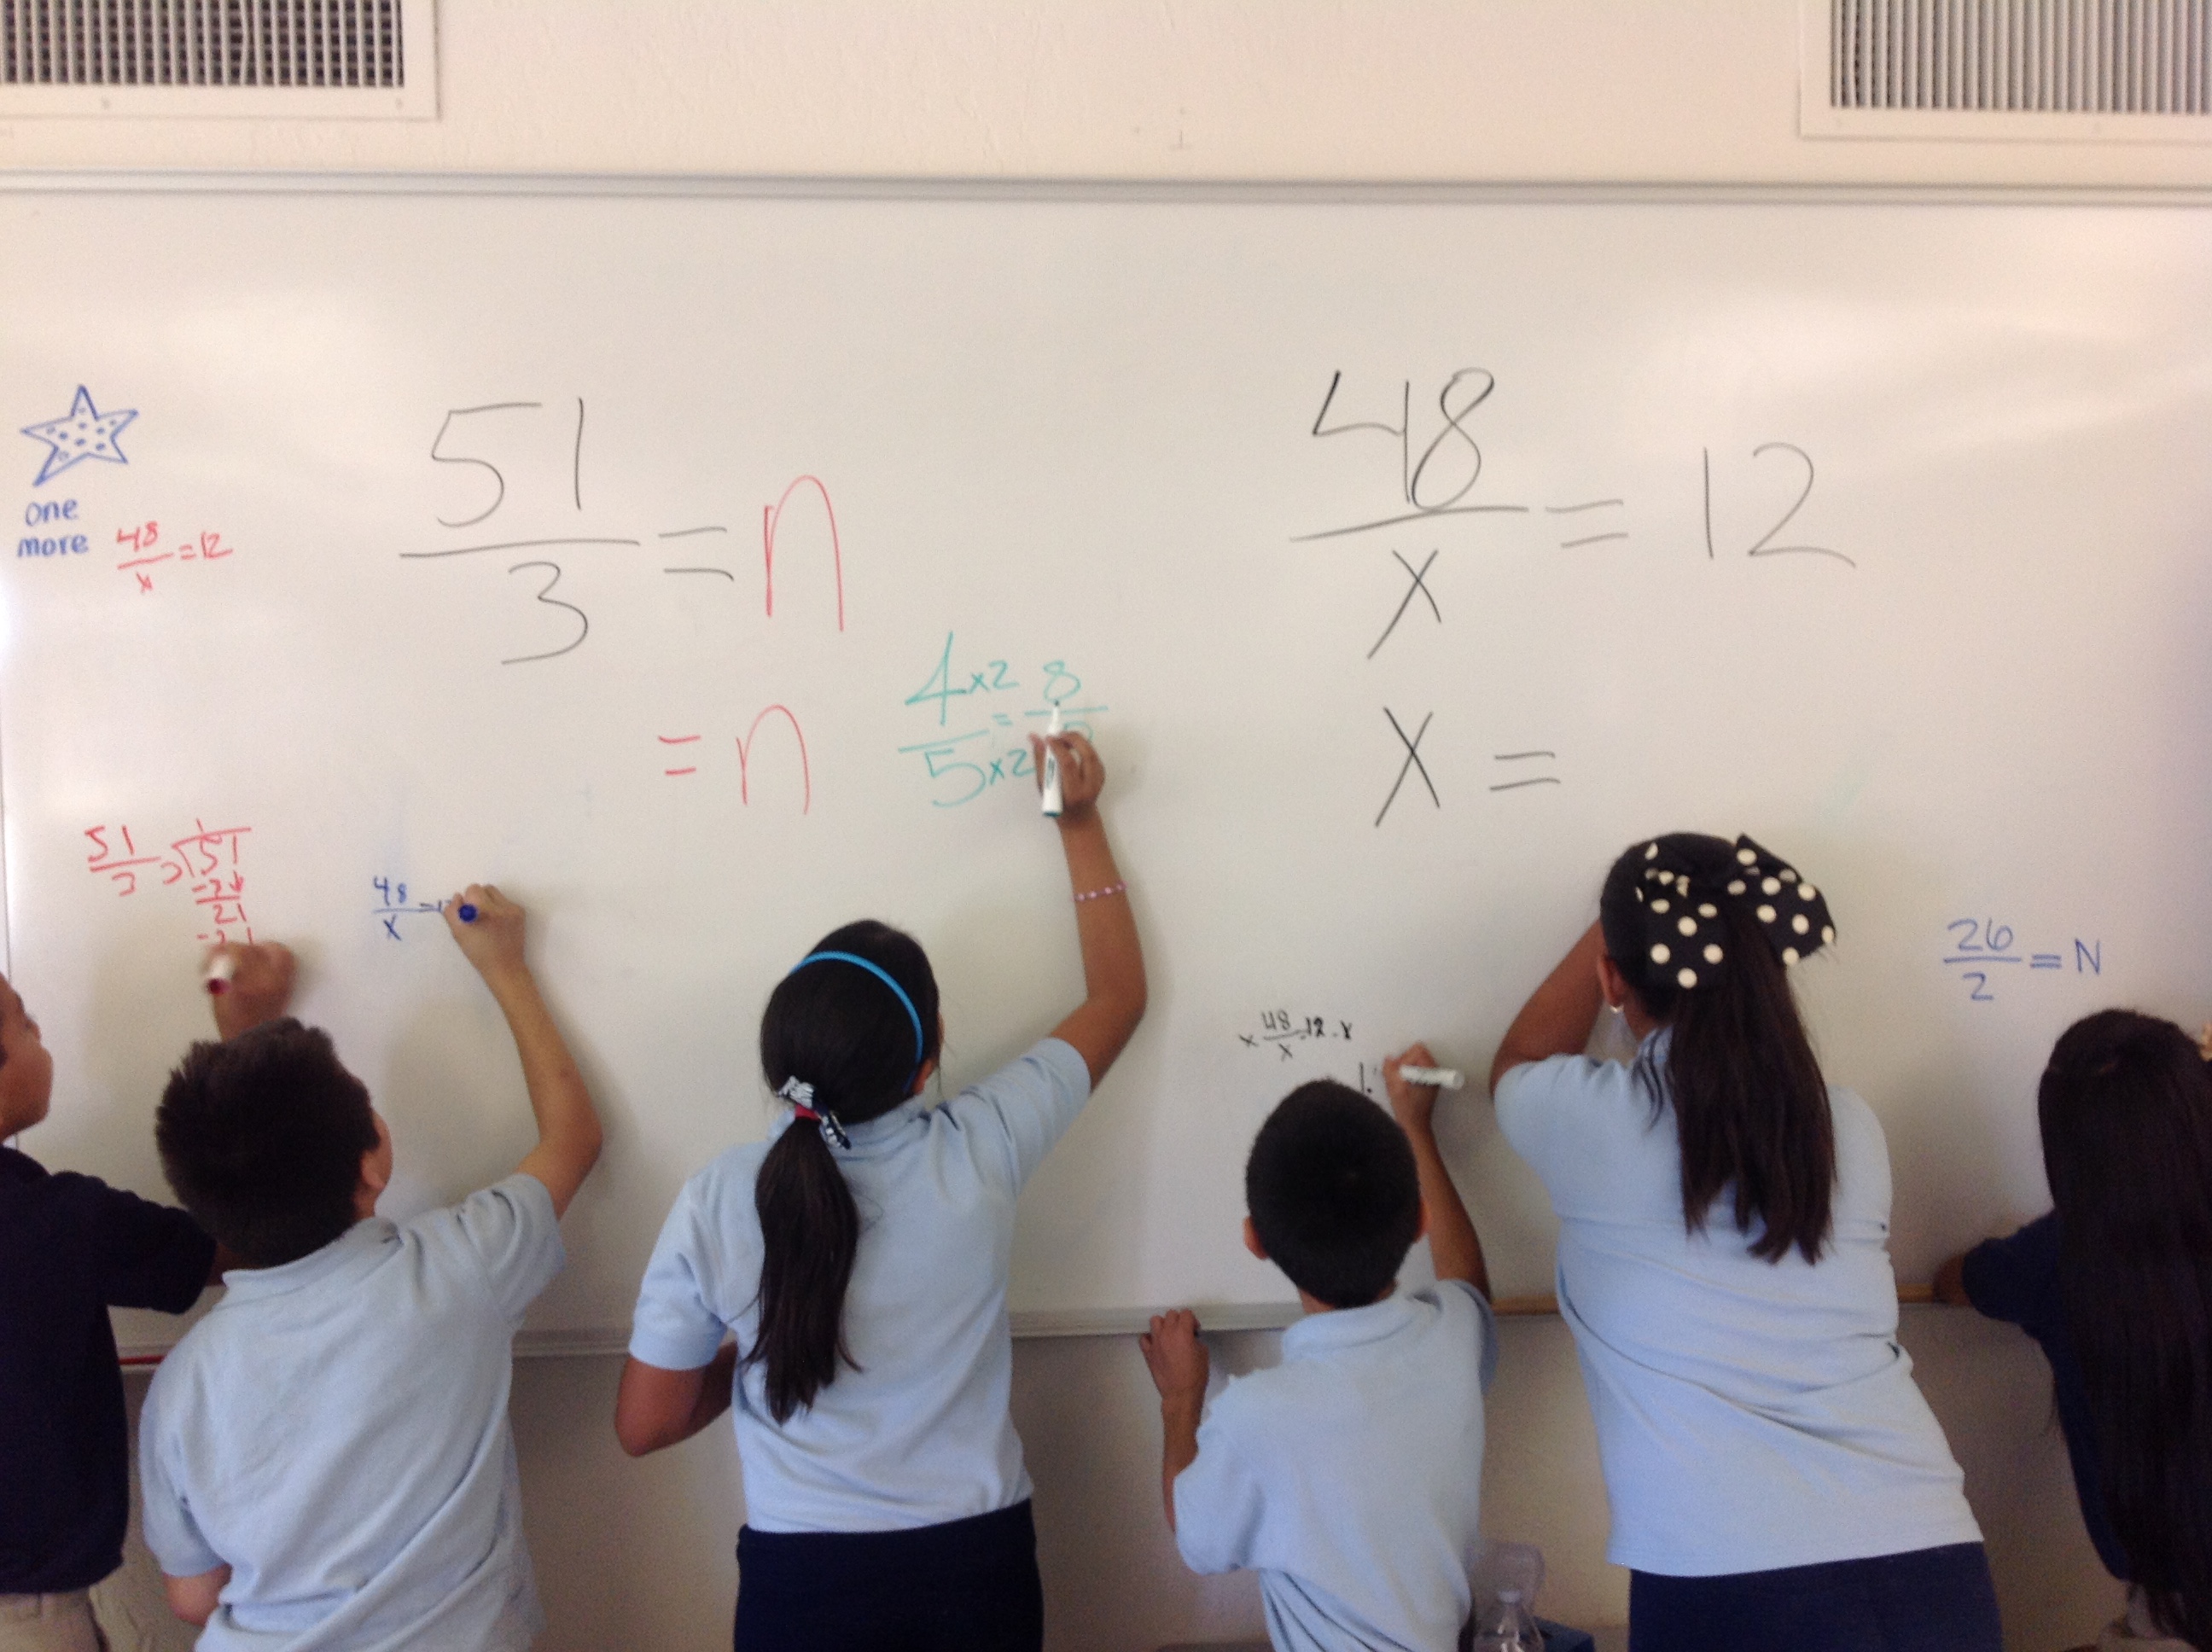 one
more
48/x = 12
51/3 = n
= n
4 x2 = 8
5 x2
48/x = 12
x =
51/3
1
3)51
-3
21
-21
48/x =
x 48/x = 12 · x
26/2 = N